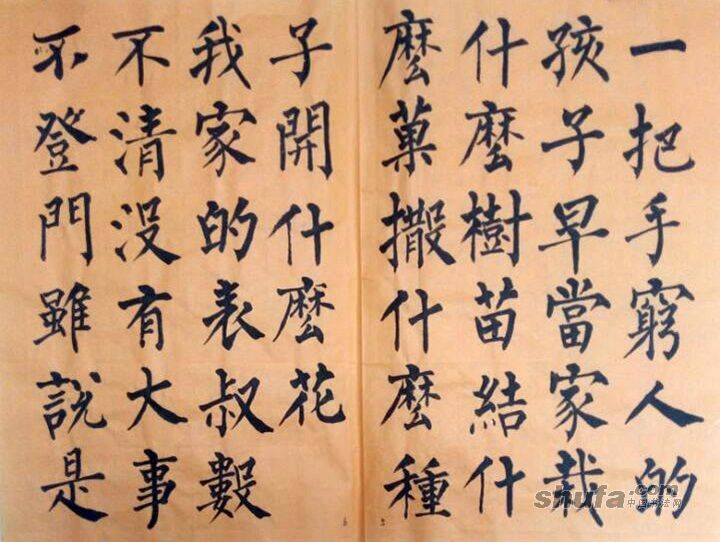 一把手窮人的
孩子早當家栽
什麼樹苗結什
麼菓撒什麼種
子開什麼花
我家的表叔數
不清没有大事
不登門雖說是
shufa.com
中国书法网